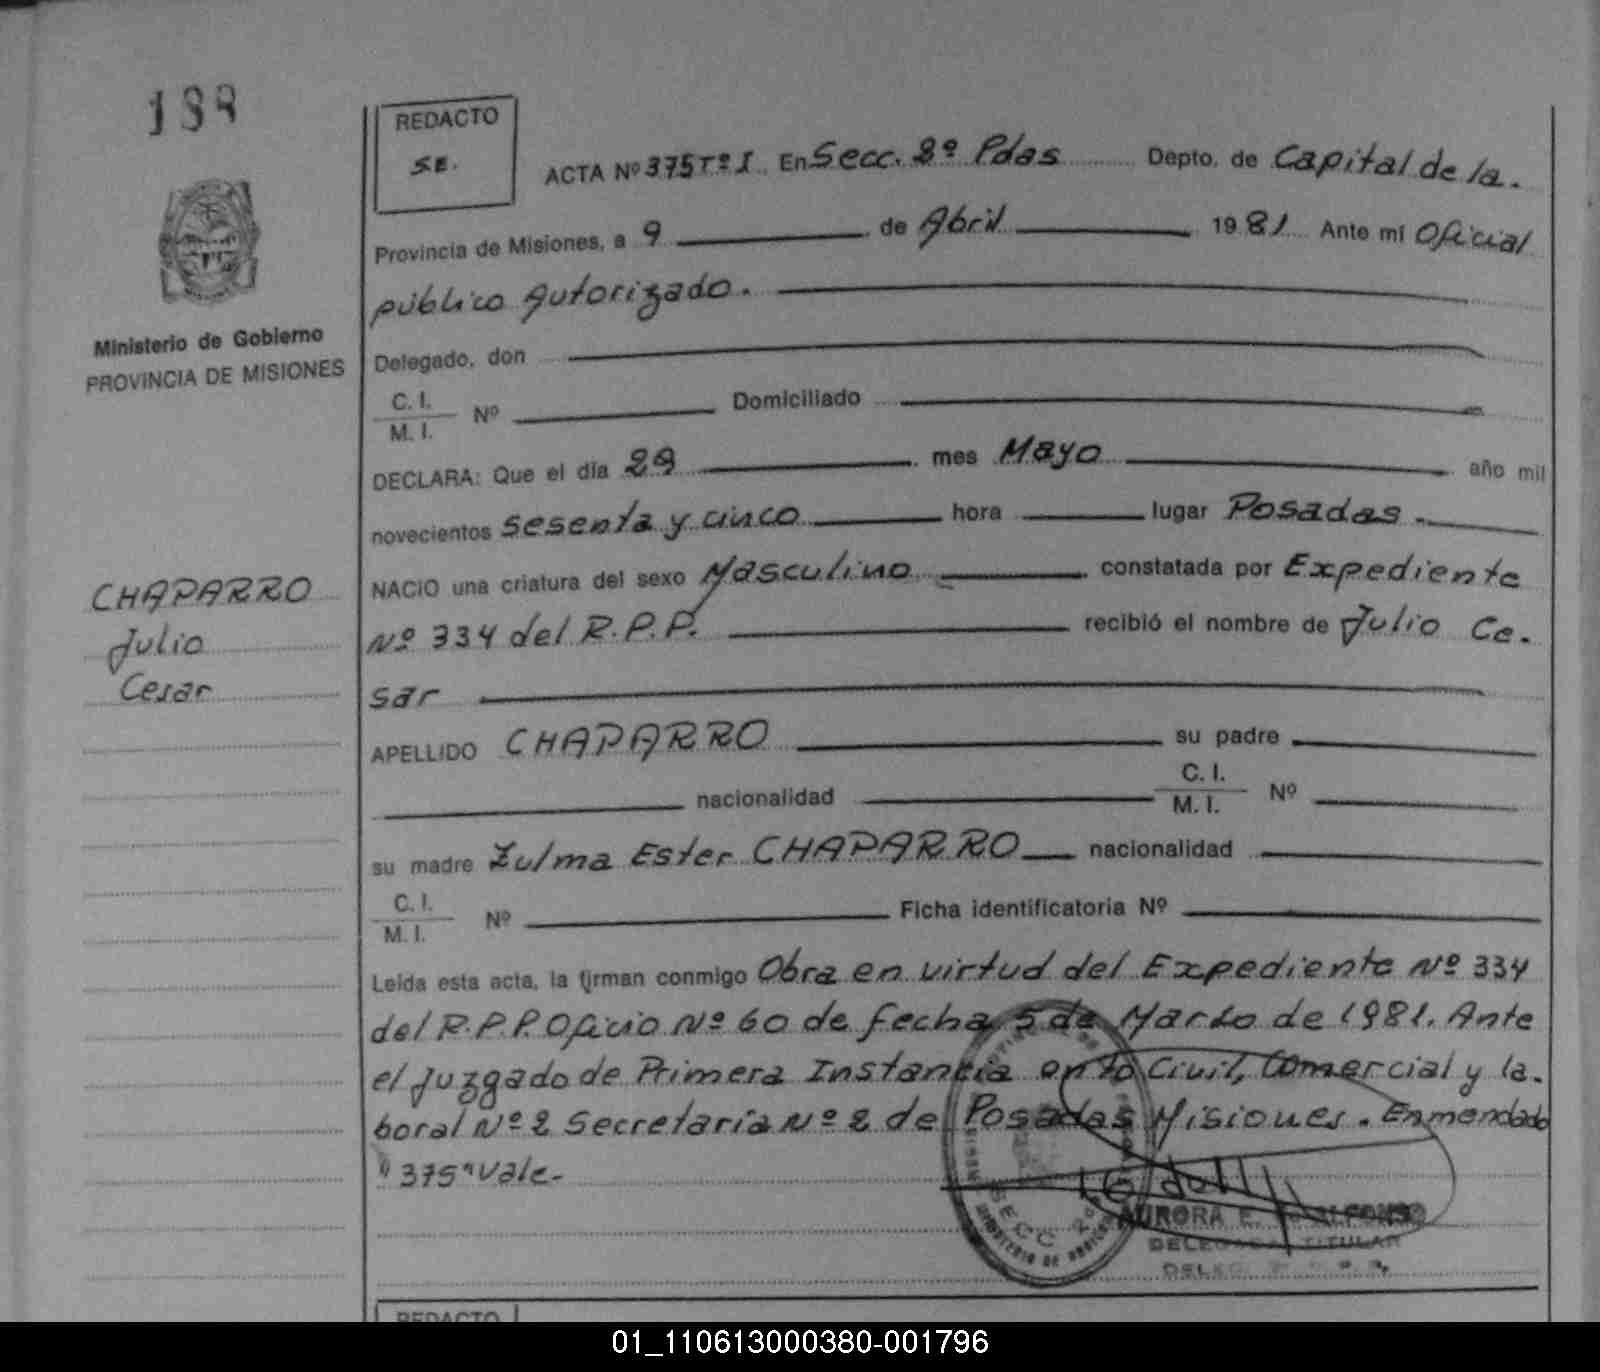 188
REDACTO
S.E.
ACTA Nº 375 Tº I En Secc. 2º Pdas Depto. de Capital de la.
Provincia de Misiones, a 9 de Abril 1981 Ante mi Oficial
público Autorizado.
Delegado, don
C. I.
M. I. Nº Domiciliado
DECLARA: Que el día 29 mes Mayo año mil
novecientos sesenta y cinco hora lugar Posadas.
NACIO una criatura del sexo Masculino constatada por Expediente
Nº 334 del R.P.P. recibió el nombre de Julio Ce-
sar
APELLIDO CHAPARRO su padre
nacionalidad C. I.
M. I. Nº
su madre Zulma Ester CHAPARRO nacionalidad
C. I.
M. I. Nº Ficha identificatoria Nº
Leída esta acta, la firman conmigo Obra en virtud del Expediente Nº 334
del R.P.P. Oficio Nº 60 de fecha 5 de Marzo de 1981. Ante
el Juzgado de Primera Instancia en lo Civil, Comercial y la-
boral Nº 2 Secretaría Nº 2 de Posadas Misiones. Enmendado
"375" Vale-
Ministerio de Gobierno
PROVINCIA DE MISIONES
CHAPARRO
Julio
Cesar
AURORA E. ALFONSO
DELEGADA TITULAR
SECC 2ª
REDACTO
01_110613000380-001796